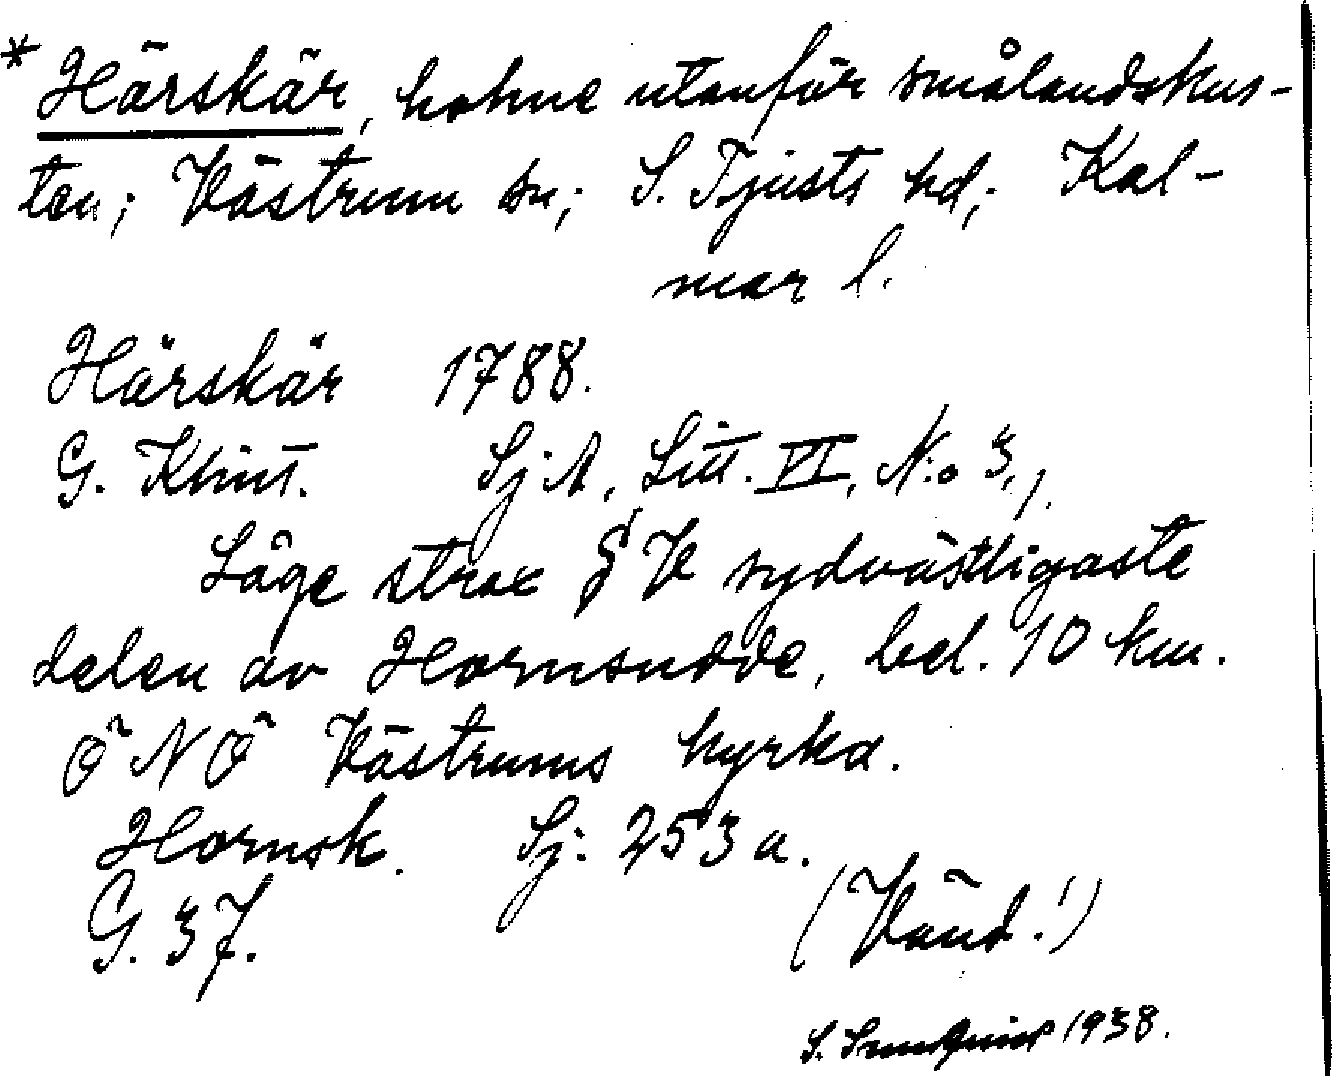 * Härskär, holme utanför smålandskus-
ten; Västrum sn; S. Tjusts hd; Kal-
mar l.
Härskär 1788.
G. Klint. Sj. A, Litt. VI, N:o 3,1.
Läge strax V sydvästligaste
delen av Hornsudde, bel. 10 km.
ÖNÖ Västrums kyrka.
Hornsk. Sj. 253 a.
G. 37.
(Vänd!)
S. 1938.